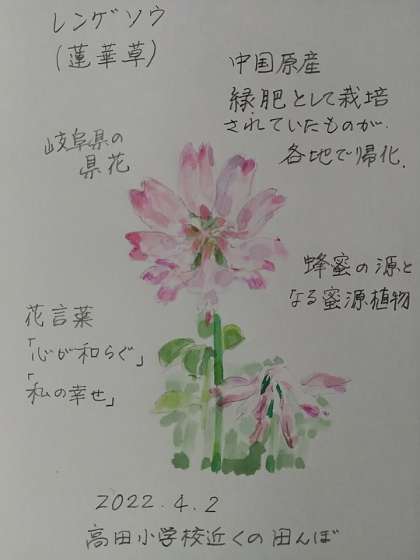 レンゲソウ
(蓮華草)
中国原産
緑肥として栽培
されていたものが.
各地で帰化.
岐阜県の
県花
蜂蜜の源と
なる蜜源植物
花言葉
「心が和らぐ」
「私の幸せ」
2022.4.2
高田小学校近くの田んぼ